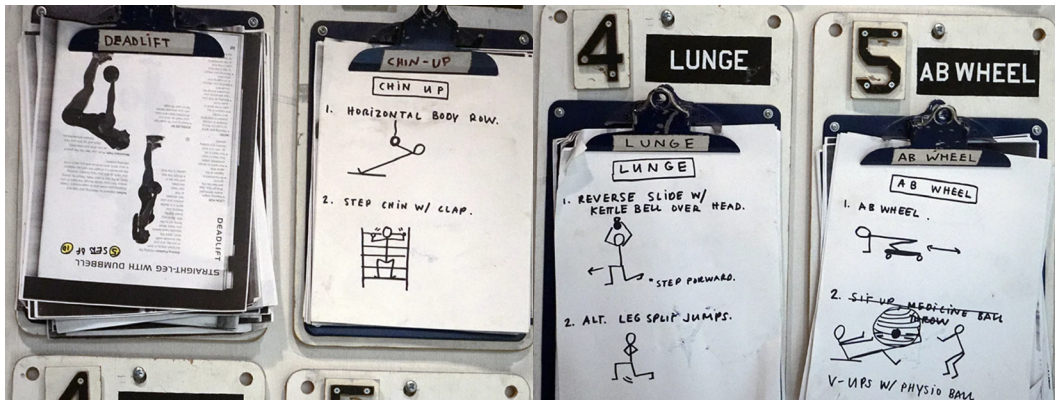 DEADLIFT
STRAIGHT-LEG WITH DUMBBELL
⑤ SETS OF ⑩
DEADLIFT
CHIN-UP
CHIN UP
1. HORIZONTAL BODY ROW.
2. STEP CHIN W/ CLAP.
4
LUNGE
LUNGE
LUNGE
1. REVERSE SLIDE W/
KETTLE BELL OVER HEAD.
"STEP FORWARD.
2. ALT. LEG SPLIT JUMPS.
5
AB WHEEL
AB WHEEL
AB WHEEL
1. AB WHEEL.
2. SIT UP, MEDICINE BALL
THROW
V-UPS W/ PHYSIO BALL